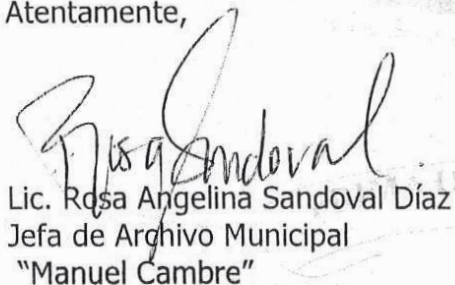 Atentamente,
Rosa Sandoval
Lic. Rosa Angelina Sandoval Díaz
Jefa de Archivo Municipal
"Manuel Cambre"